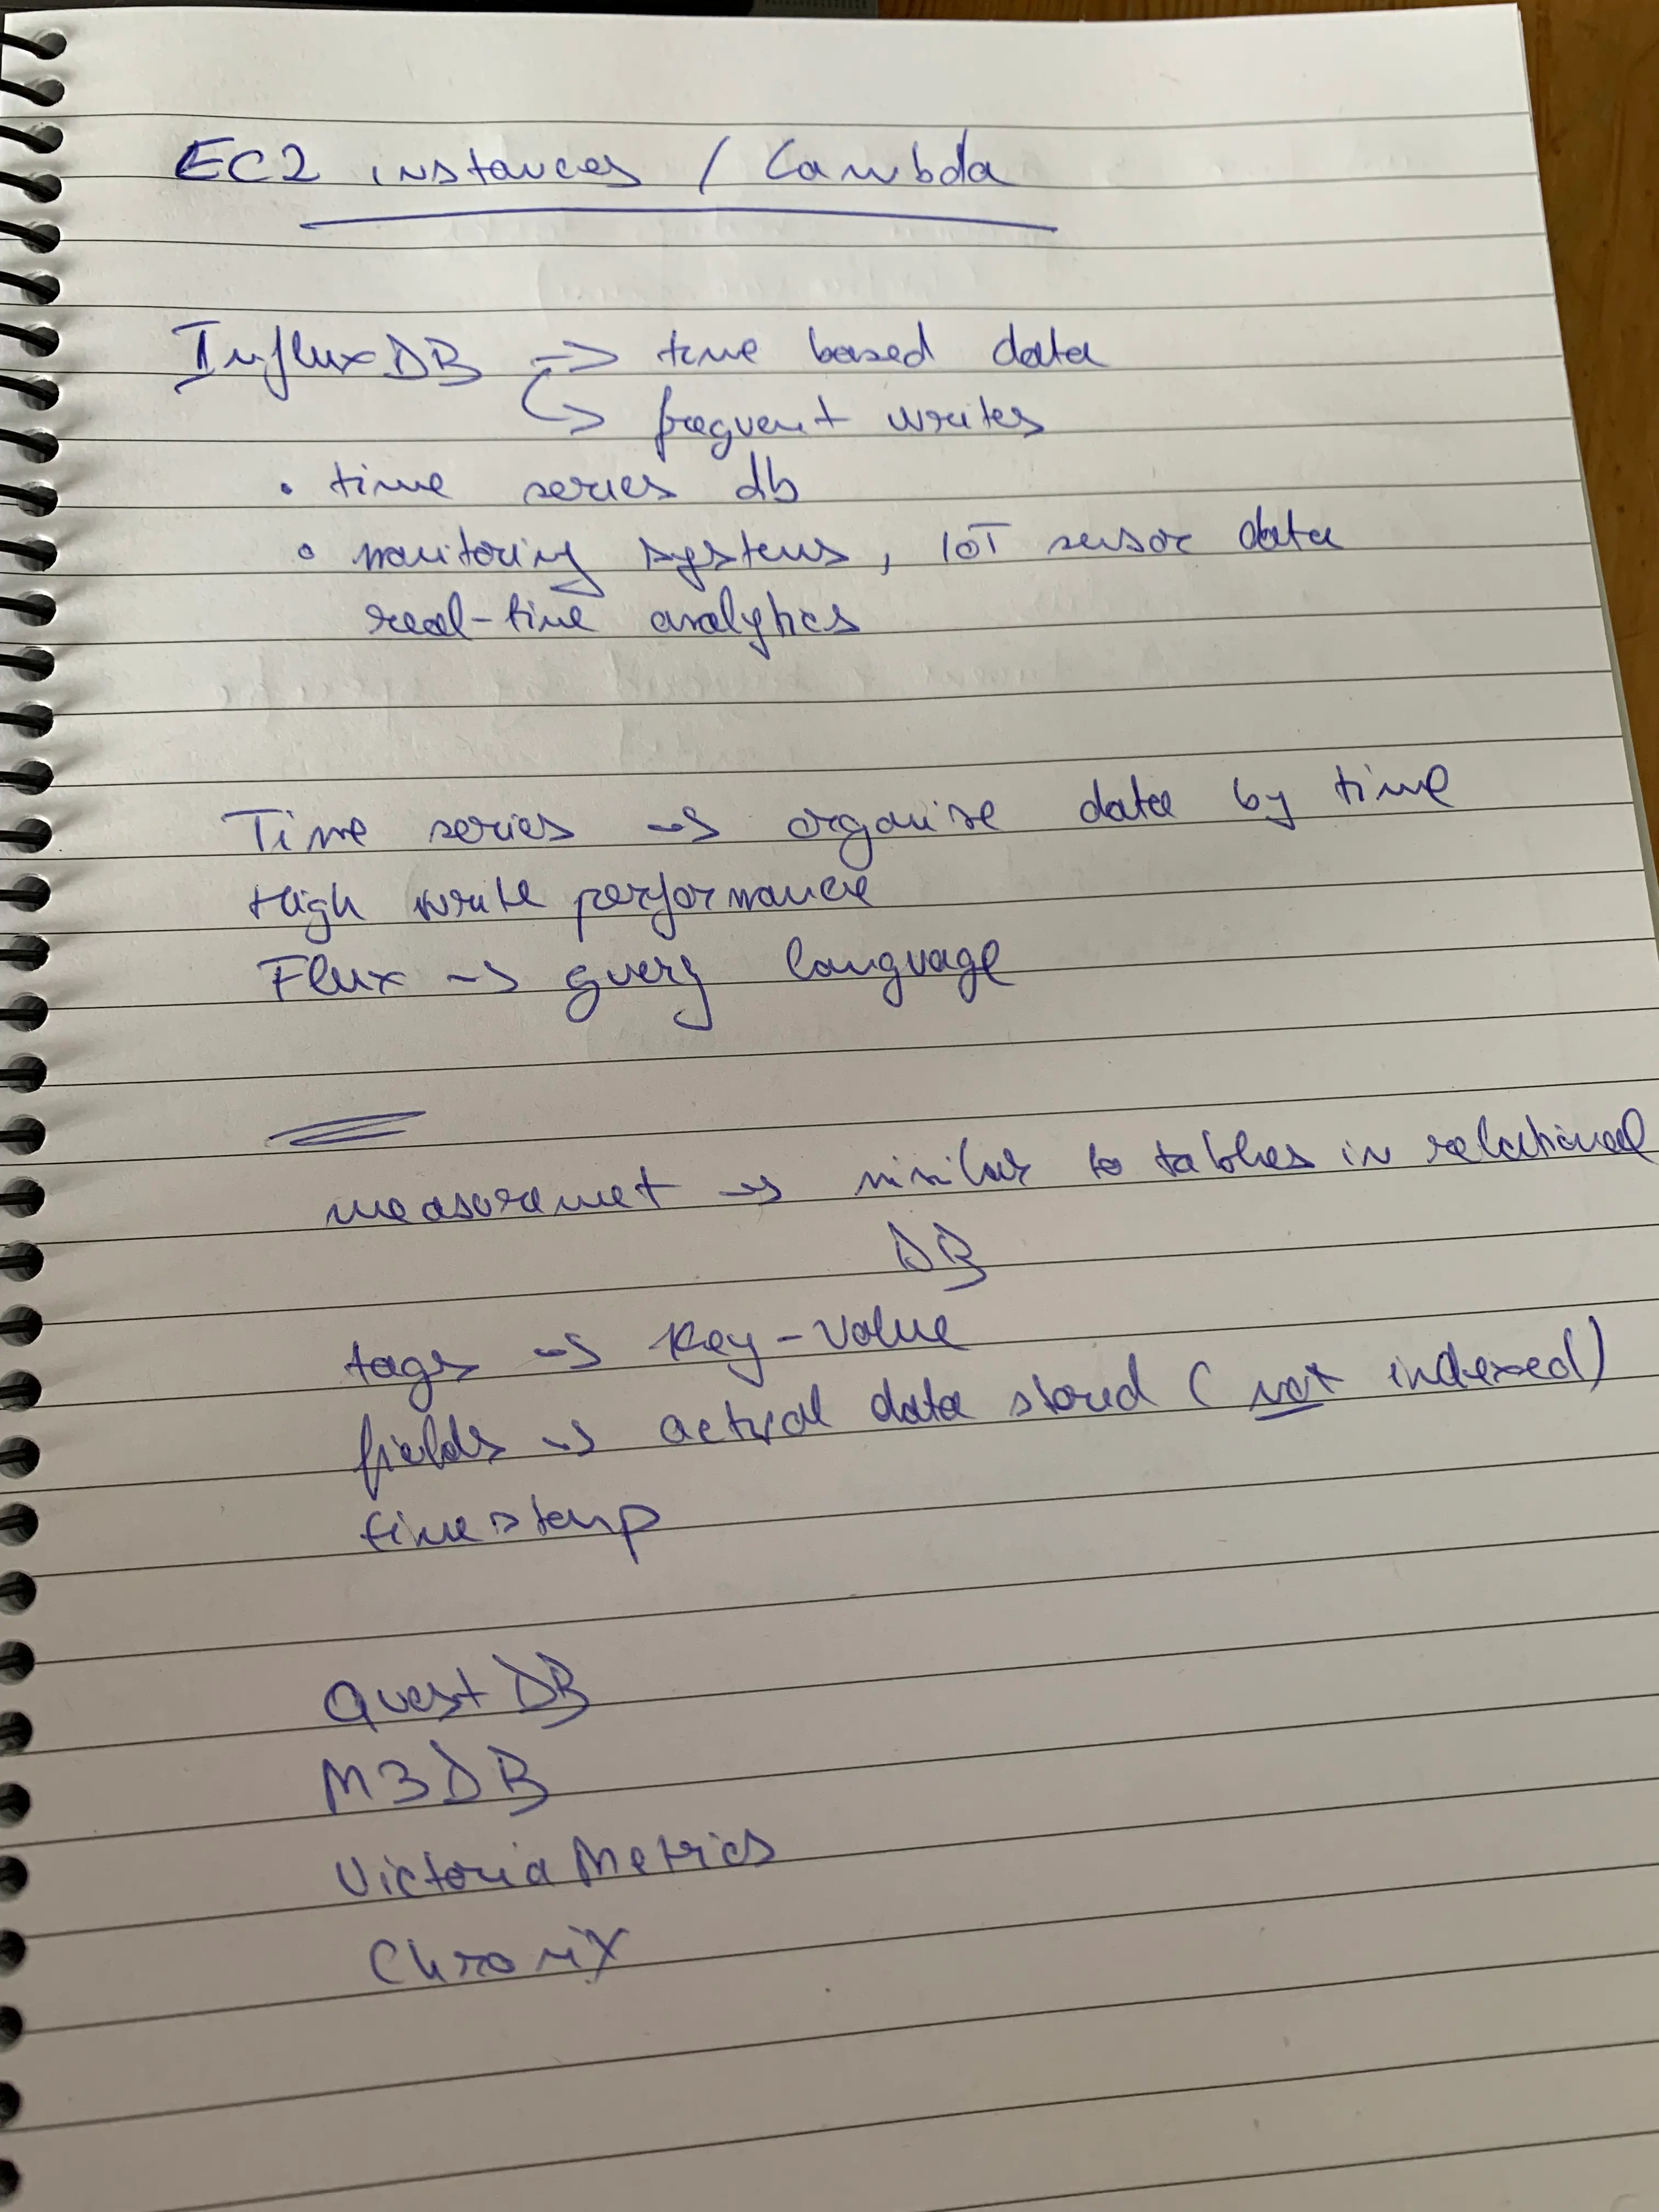 EC2 instances / Lambda
InfluxDB -> time based data
-> frequent writes
• time series db
• monitoring systems, IoT sensor data
real-time analytics
Time series -> organise data by time
High write performance
Flux -> query language
measuremet -> similar to tables in relational
DB
tags -> key-value
fields -> actual data stored (not indexed)
timestamp
QuestDB
M3DB
VictoriaMetrics
ChroniX